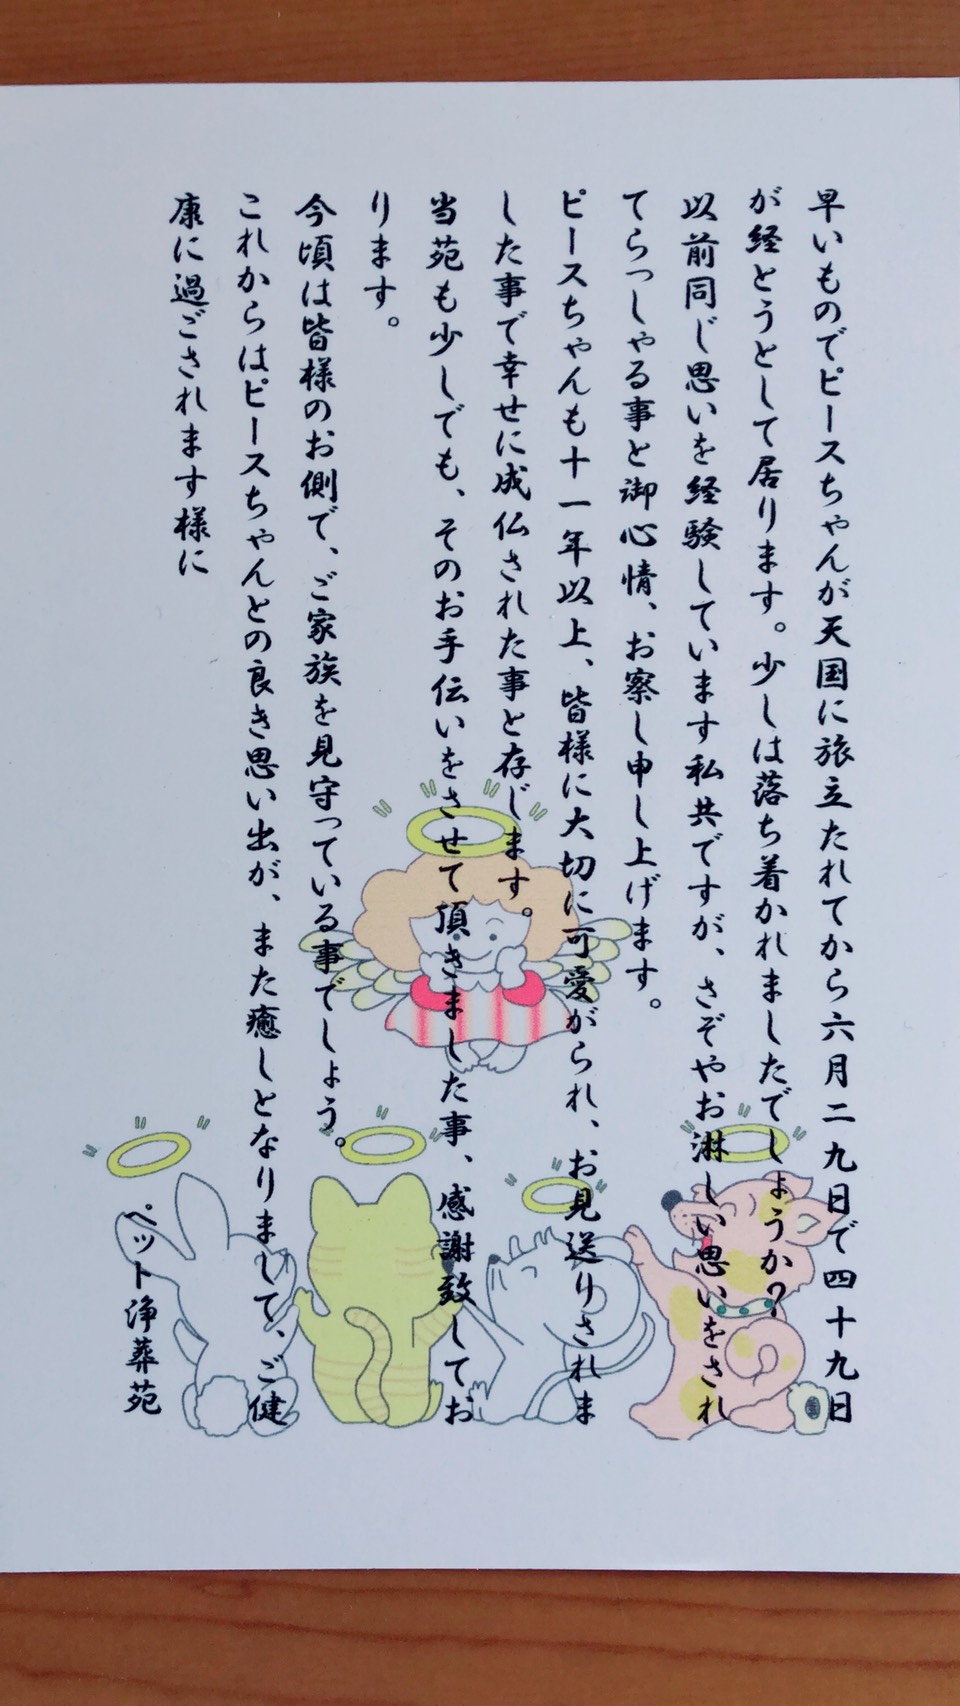 早いものでピースちゃんが天国に旅立たれてから六月二九日で四十九日
が経とうとして居ります。少しは落ち着かれましたでしょうか?
以前同じ思いを経験しています私共ですが、さぞやお淋しい思いをされ
てらっしゃる事と御心情、お察し申し上げます。
ピースちゃんも十一年以上、皆様に大切に可愛がられ、お見送りされま
した事で幸せに成仏された事と存じます。
当苑も少しでも、そのお手伝いをさせて頂きました事、感謝致してお
ります。
今頃は皆様のお側で、ご家族を見守っている事でしょう。
これからはピースちゃんとの良き思い出が、また癒しとなりまして、ご健
康に過ごされます様に
ペット浄葬苑